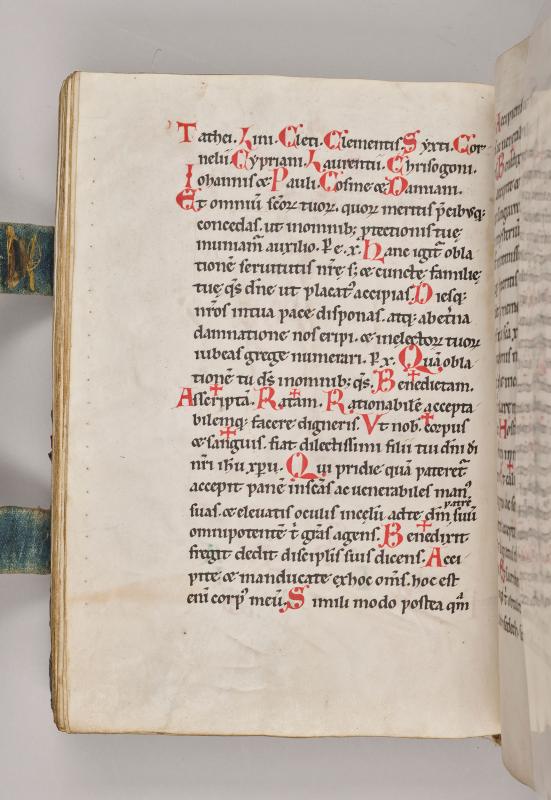 Tathei. Lini. Cleti. Clementis. Syxti. Cor
nelii. Cypriani. Laurentii. Chrisogoni.
Iohannis & Pauli. Cosme & Damiani.
Et omniū scōꝝ tuoꝝ. quoꝝ meritis p̄cibusq;
concedas. ut in omnib; ꝓtectionis tuę
muniam̄ auxilio. P̄ e. x̄. Hanc igit̄ obla
tionē seruitutis nr̄ę s; & cunctę familię
tuę q̄s dn̄e ut placatꝰ accipias. Diesq;
nr̄os in tua pace disponas. atq; ab et̄na
damnatione nos eripi. & in electoꝝ tuoꝝ
iubeas grege numerari. P̄. x̄. Quā obla
tionē tu ds̄ in omnib; q̄s. Bene✝dictam.
Asscri✝ptā. Ratam. Rationabilē accepta
bilemq; facere digneris. Vt nob̄. cor✝pus
& san✝guis. fiat dilectissimi filii tui dn̄i di
nr̄i ih̄u xp̄u. Qui pridie quā pateret̄
accepit panē in scās ac uenerabiles manꝰ
suas. & eleuatis oculis in celū ad te dm̄ patrē suū
omnipotentē t̄ grās agens. Bene✝dixit
fregit dedit discipłis suis dicens. Acci
pite & manducate ex hoc om̄s. hoc est
eni corpꝰ meū. Simili modo postea qm̄